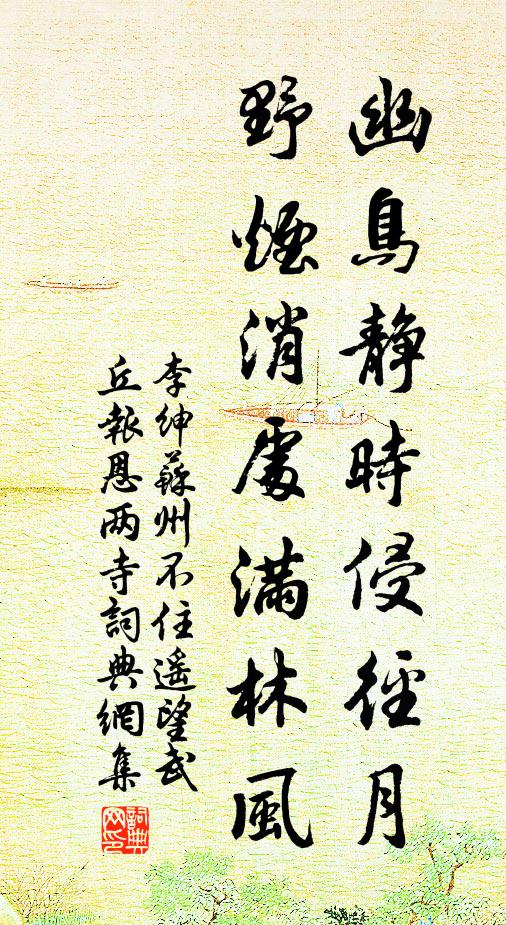 幽鳥静時侵徑月
野煙消處满林風
李紳蘇州不住遥望武
丘報恩两寺詞典網集
詞典网印